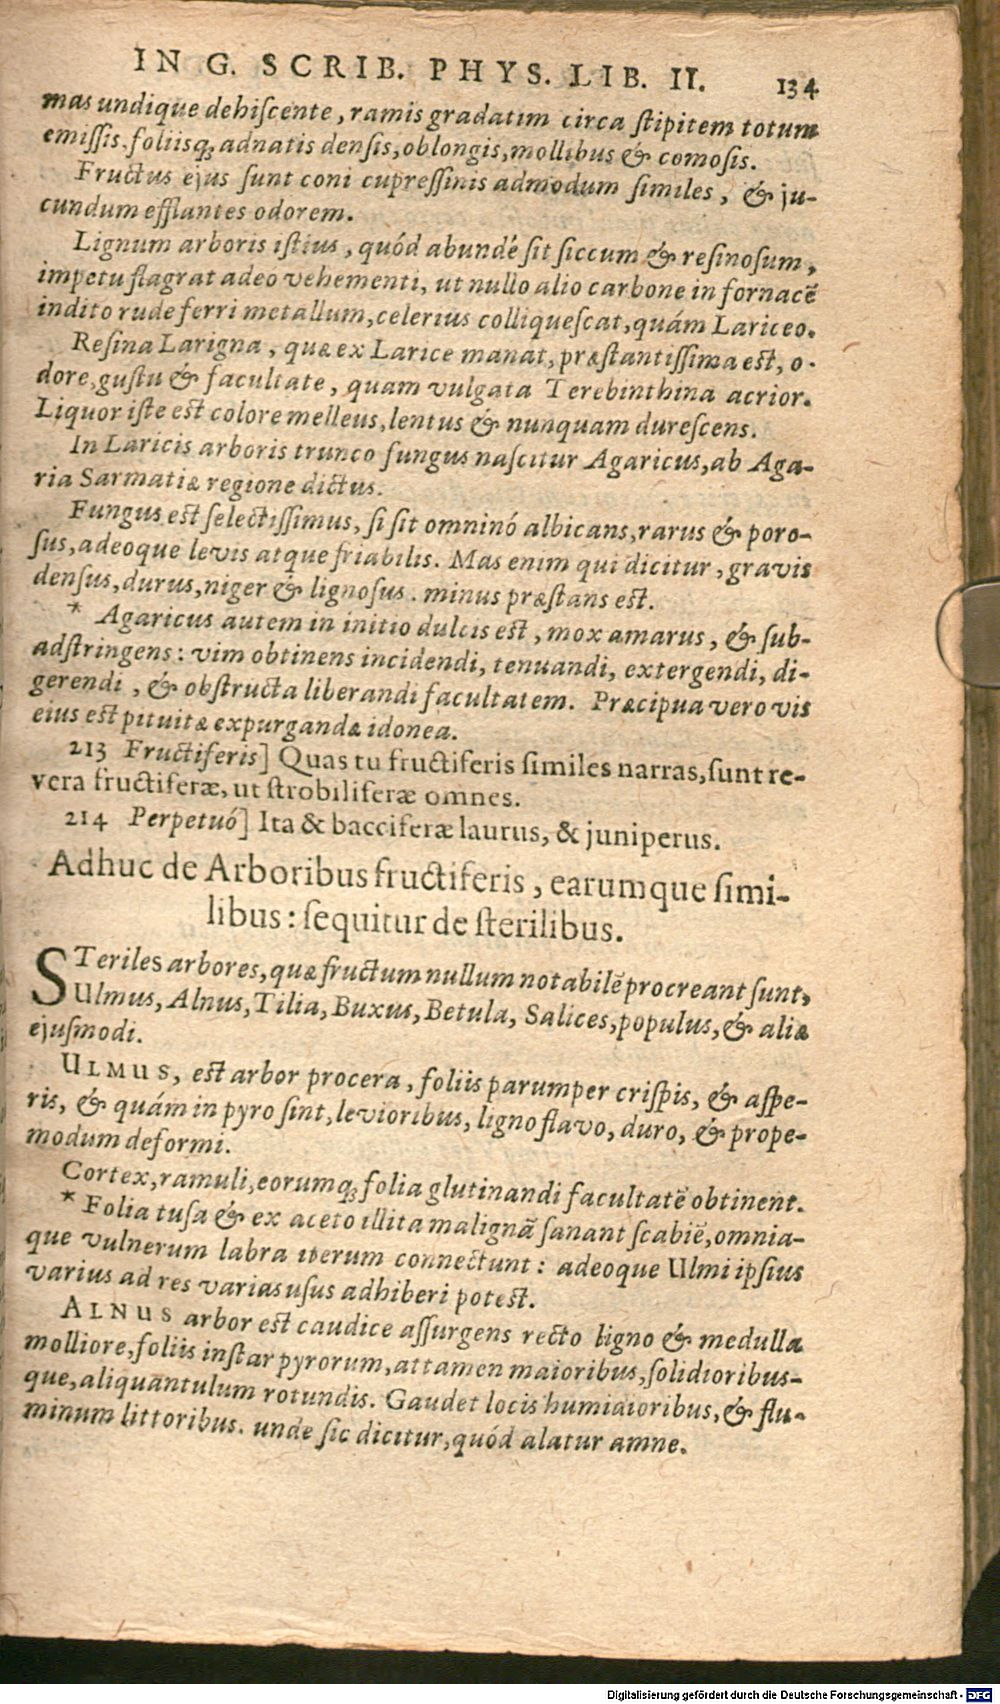 IN G. SCRIB. PHYS. LIB. II. 134
mas undique dehiſcente, ramis gradatim circa ſtipitem totum
emiſſis, foliisq́; adnatis denſis, oblongis, mollibus & comoſis.
Fructus ejus ſunt coni cupreſſinis admodum ſimiles, & ju-
cundum efflantes odorem.
Lignum arboris iſtius, quód abundé ſit ſiccum & reſinoſum,
impetu flagrat adeo vehementi, ut nullo alio carbone in fornacē
indito rude ferri metallum, celerius colliqueſcat, quám Lariceo.
Reſina Larigna, quæ ex Larice manat, præſtantiſſima est, o-
dore, guſtu & facultate, quam vulgata Terebinthina acrior.
Liquor iſte est colore melleus, lentus & nunquam dureſcens.
In Laricis arboris trunco fungus naſcitur Agaricus, ab Aga-
ria Sarmatiæ regione dictus.
Fungus est ſelectiſſimus, ſi ſit omninó albicans, rarus & poro-
ſus, adeoque levis atque friabilis. Mas enim qui dicitur, gravis
denſus, durus, niger & lignoſus. minus præſtans est.
* Agaricus autem in initio dulcis est, mox amarus, & ſub-
adſtringens: vim obtinens incidendi, tenuandi, extergendi, di-
gerendi, & obſtructa liberandi facultatem. Præcipua vero vis
eius est pituitæ expurgandæ idonea.
213 Fructiferis] Quas tu fructiferis ſimiles narras, ſunt re-
vera fructiferæ, ut ſtrobiliferæ omnes.
214 Perpetuó] Ita & bacciferæ laurus, & juniperus.
Adhuc de Arboribus fructiferis, earumque ſimi-
libus: ſequitur de ſterilibus.
STeriles arbores, quæ fructum nullum notabilē procreant ſunt,
Ulmus, Alnus, Tilia, Buxus, Betula, Salices, populus, & aliæ
ejuſmodi.
ULMUS, est arbor procera, foliis parumper criſpis, & aſpe-
ris, & quám in pyro ſint, levioribus, ligno flavo, duro, & prope-
modum deformi.
Cortex, ramuli, eorumq́; folia glutinandi facultatē obtinent.
* Folia tuſa & ex aceto illita malignā ſanant ſcabiē, omnia-
que vulnerum labra iterum connectunt: adeoque Ulmi ipſius
varius ad res varias uſus adhiberi potest.
ALNUS arbor est caudice aſſurgens recto ligno & medulla
molliore, foliis inſtar pyrorum, attamen maioribus, ſolidioribus-
que, aliquantulum rotundis. Gaudet locis humidioribus, & flu-
minum littoribus. unde ſic dicitur, quód alatur amne.
Digitalisierung gefördert durch die Deutsche Forschungsgemeinschaft - DFG